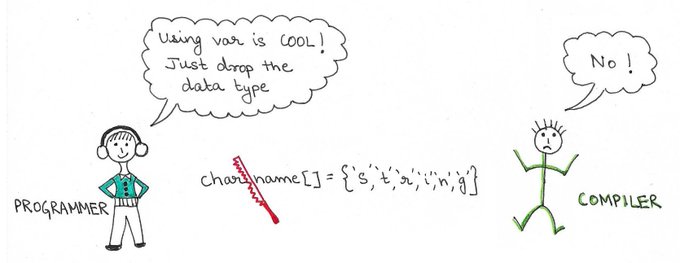 Using var is COOL!
Just drop the
data type
No!
char name[] = {'s','t','r','i','n','g'}
PROGRAMMER
COMPILER